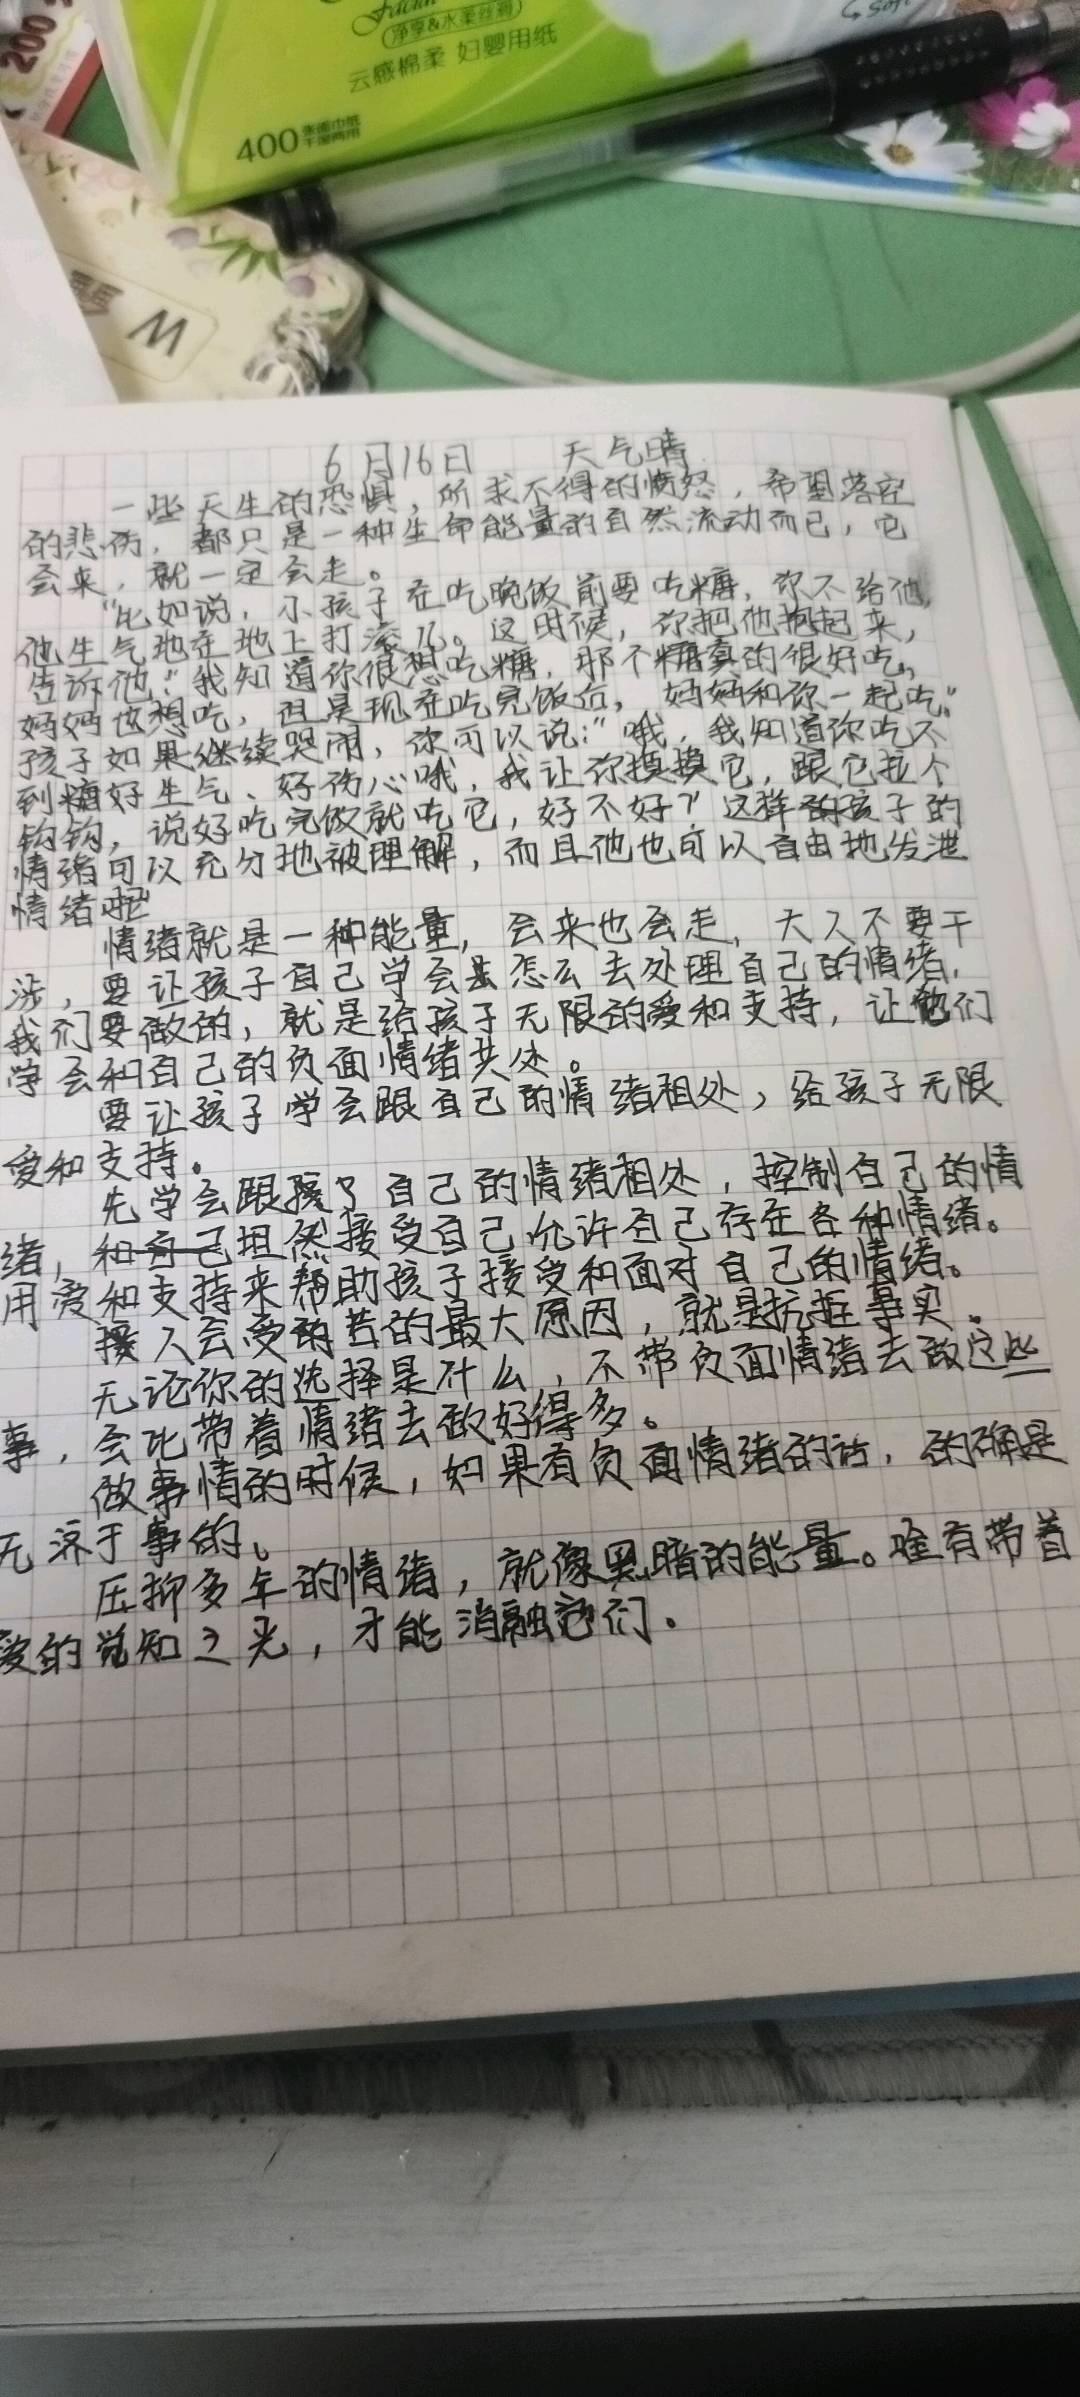 200
Facial
净享&水柔丝滑
云感棉柔 妇婴用纸
400张面巾纸
干湿两用
Soft
W
6月16日 天气晴
一些天生的恐惧，所求不得的愤怒，希望落空
的悲伤，都只是一种生命能量的自然流动而已，它
会来，就一定会走。
“比如说，小孩子在吃晚饭前要吃糖，你不给他，
他生气地在地上打滚儿。这时候，你把他抱起来，
告诉他：“我知道你很想吃糖，那个糖真的很好吃，
妈妈也想吃，但是现在吃完饭后，妈妈和你一起吃。”
孩子如果继续哭闹，你可以说：“哦，我知道你吃不
到糖好生气、好伤心哦，我让你摸摸它，跟它拉个
钩钩，说好吃完饭就吃它，好不好？”这样孩子的
情绪可以充分地被理解，而且他也可以自由地发泄
情绪啦”
情绪就是一种能量，会来也会走，大人不要干
涉，要让孩子自己学会怎么去处理自己的情绪，
我们要做的，就是给孩子无限的爱和支持，让他们
学会和自己的负面情绪共处。
要让孩子学会跟自己的情绪相处，给孩子无限
爱和支持。
先学会跟自己的情绪相处，控制自己的情
绪，坦然接受自己允许自己存在各种情绪。
用爱和支持来帮助孩子接受和面对自己的情绪。
人会受苦的最大原因，就是抗拒事实。
无论你的选择是什么，不带负面情绪去做这些
事，会比带着情绪去做好得多。
做事情的时候，如果有负面情绪的话，的确是
无济于事的。
压抑多年的情绪，就像黑暗的能量。唯有带着
爱的觉知之光，才能消融它们。